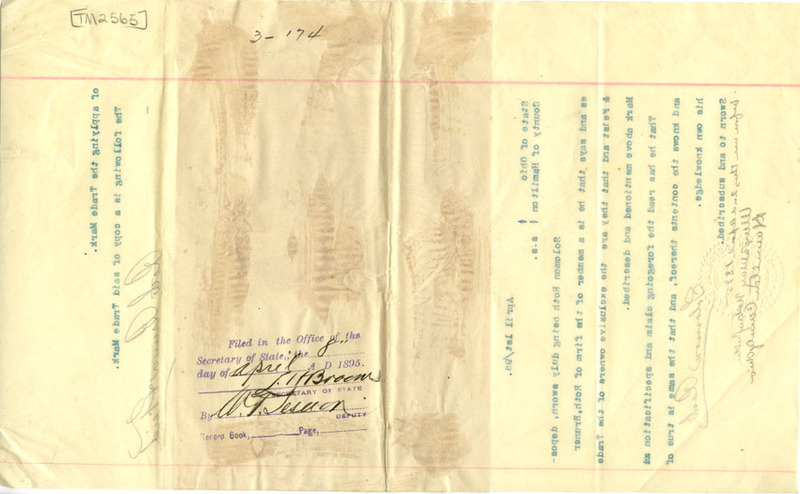 TM2565
3-174
Filed in the Office of the
Secretary of State, the 8
day of April A D 1895.
SECRETARY OF STATE
By
DEPUTY
Record Book, Page,
of applying the Trade Mark.
The following is a copy of said Trade Mark.
April 1st/95
State of Ohio
County of Hamilton s.s.
Solomon Roth being duly sworn, depos-
es and says that he is a member of the firm of Roth, Bruner
& Feist and that they are the exclusive owners of the Trade
Mark above mentioned and described.
That he has read the foregoing claim and specification
and knows the contents thereof, and that the same is true of
his own knowledge.
Sworn to and subscribed.